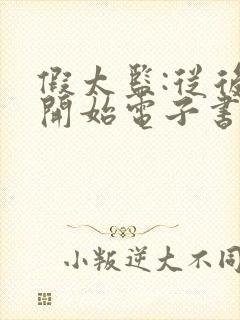 假太監:從後
開始電子書
小叛逆大不同